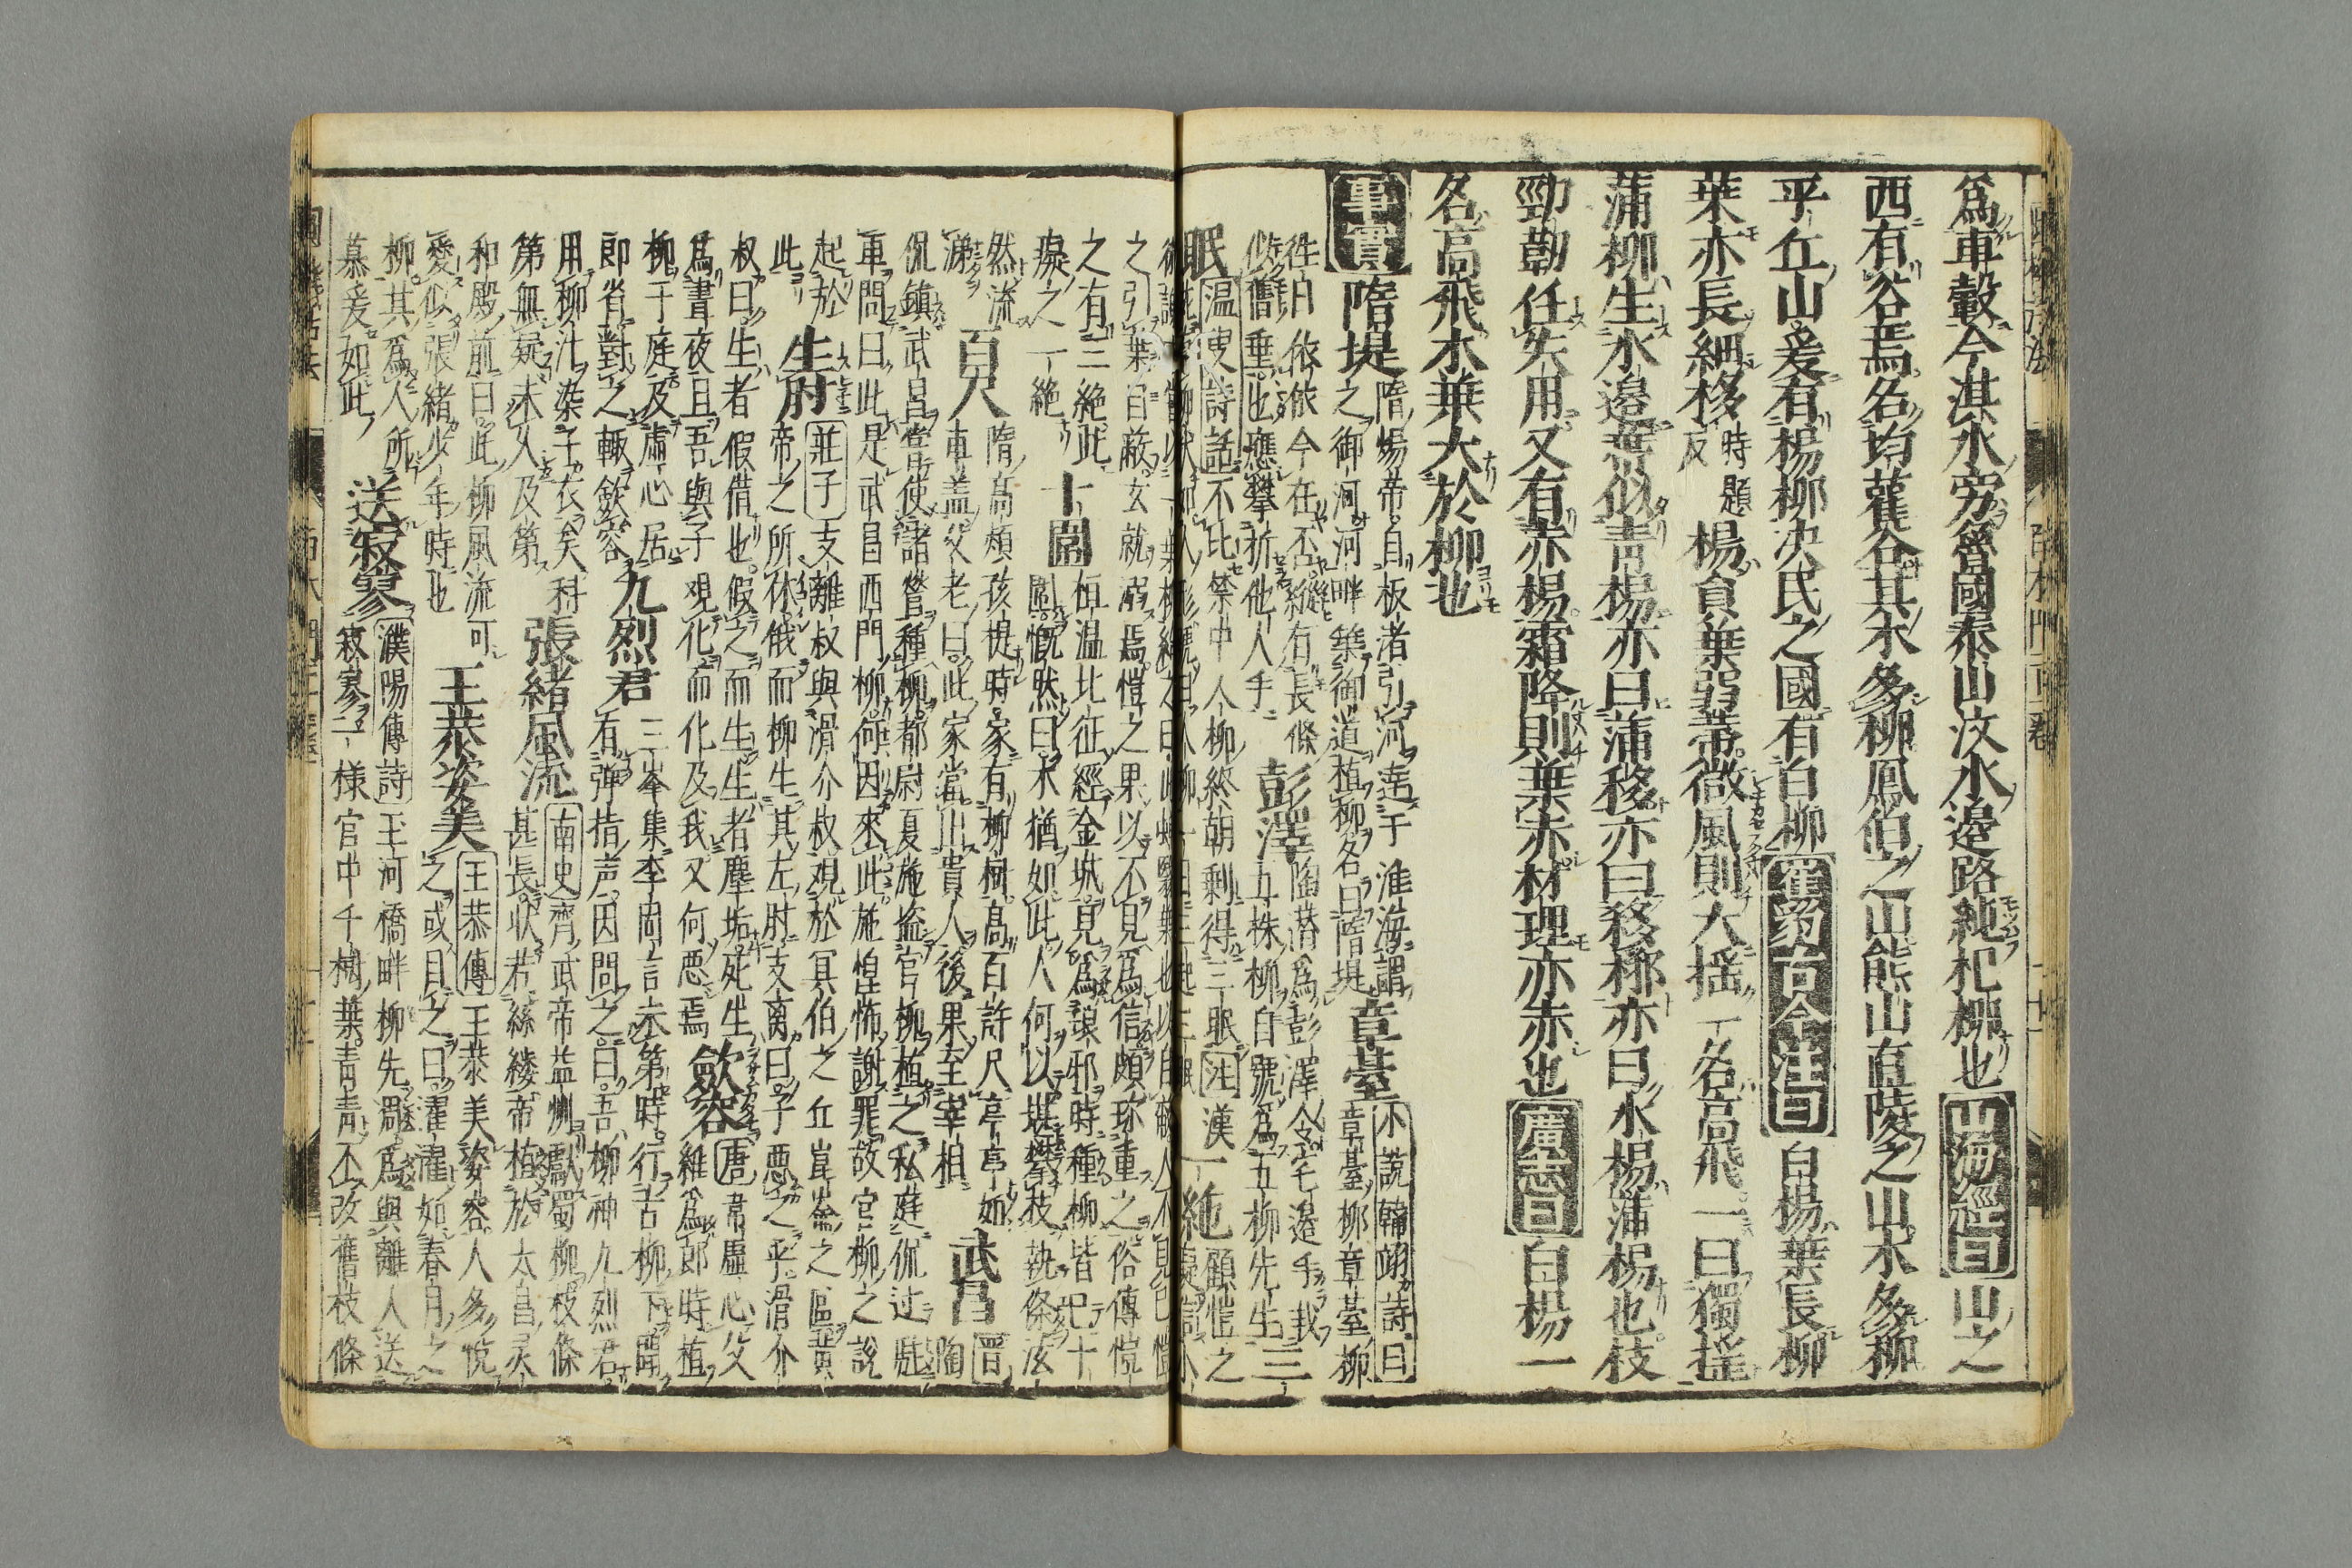 為車轂今淇水旁魯國泰山汶水邉路純杞柳也山海經曰山之
西有谷焉名均雚谷其木多柳鳳伯之山熊山直陵之山木多柳
乎丘山爰有楊柳沃民之國有白柳崔豹古今注曰白楊葉長柳
葉亦長細栘時題反楊負葉弱蒂微風則大揺一名高飛一曰獨揺
蒲柳生水邉葉似青楊亦曰蒲栘亦曰栘柳亦曰水楊蒲楊也枝
勁韌任矢用又有赤楊霜降則葉赤材理亦赤也廣志曰白楊一
名高飛木葉大於柳也
事實
隋堤
隋煬帝自板渚引河達于淮海謂
之御河河畔築御道植柳名曰隋堤
章臺
不説韓翊詩曰
章臺柳章臺柳
往日依依今在否縱有長條
似舊垂也應攀折他人手
彭澤
陶潛為彭澤令宅邉手栽三
五株柳自號為五柳先生
眠
温叟詩話不比禁中人柳終朝剩得三眠注漢
一絶
顧愷之
之引葉自蔽玄就溺焉愷之果以不見為信頗珍重之俗傳愷
之有三絶此
癡之一絶
十圍
桓温北征經金城見為琅邪時種柳皆已十
圍慨然曰木猶如此人何以堪攀枝執條泫
然流
涕
百尺
隋高熲孩提時家有柳樹高百許尺亭亭如
車盖父老曰此家當出貴人後果至宰相
武昌
晋
陶
侃鎮武昌嘗使諸營種柳都尉夏施盗官柳植之私庭侃过駐
車問曰此是武昌西門柳何因來此施惶怖謝罪故官柳之説
起於
此
生肘
莊子支離叔與滑介叔观於冥伯之丘崑崙之區黄
帝之所休俄而柳生其左肘支离曰子悪之乎滑介
叔曰生者假借也假之而生生者塵垢死生
為晝夜且吾與子观化而化及我又何悪焉
歛容
唐韋虚心父
維為郎時植
柳于庭及虚心居
即省對之輙歛容
九烈君
三峯集李固言未第時行古柳下聞
有弾指声因問之曰吾柳神九烈君
用柳汁染子衣矣科
第無疑未久及第
張緒風流
南史齊武帝益州獻蜀柳枝條
甚長状若絲縷帝植於太昌灵
和殿前曰此柳風流可
愛似張緒少年時也
王恭姿美
王恭傳王恭美姿容人多悦
之或目之曰濯濯如春月之
柳其為人所
慕爰如此
送寂寥
濮陽傳詩玉河橋畔柳先凋為與離人送
寂寥一様官中千樹葉青青不改舊枝條